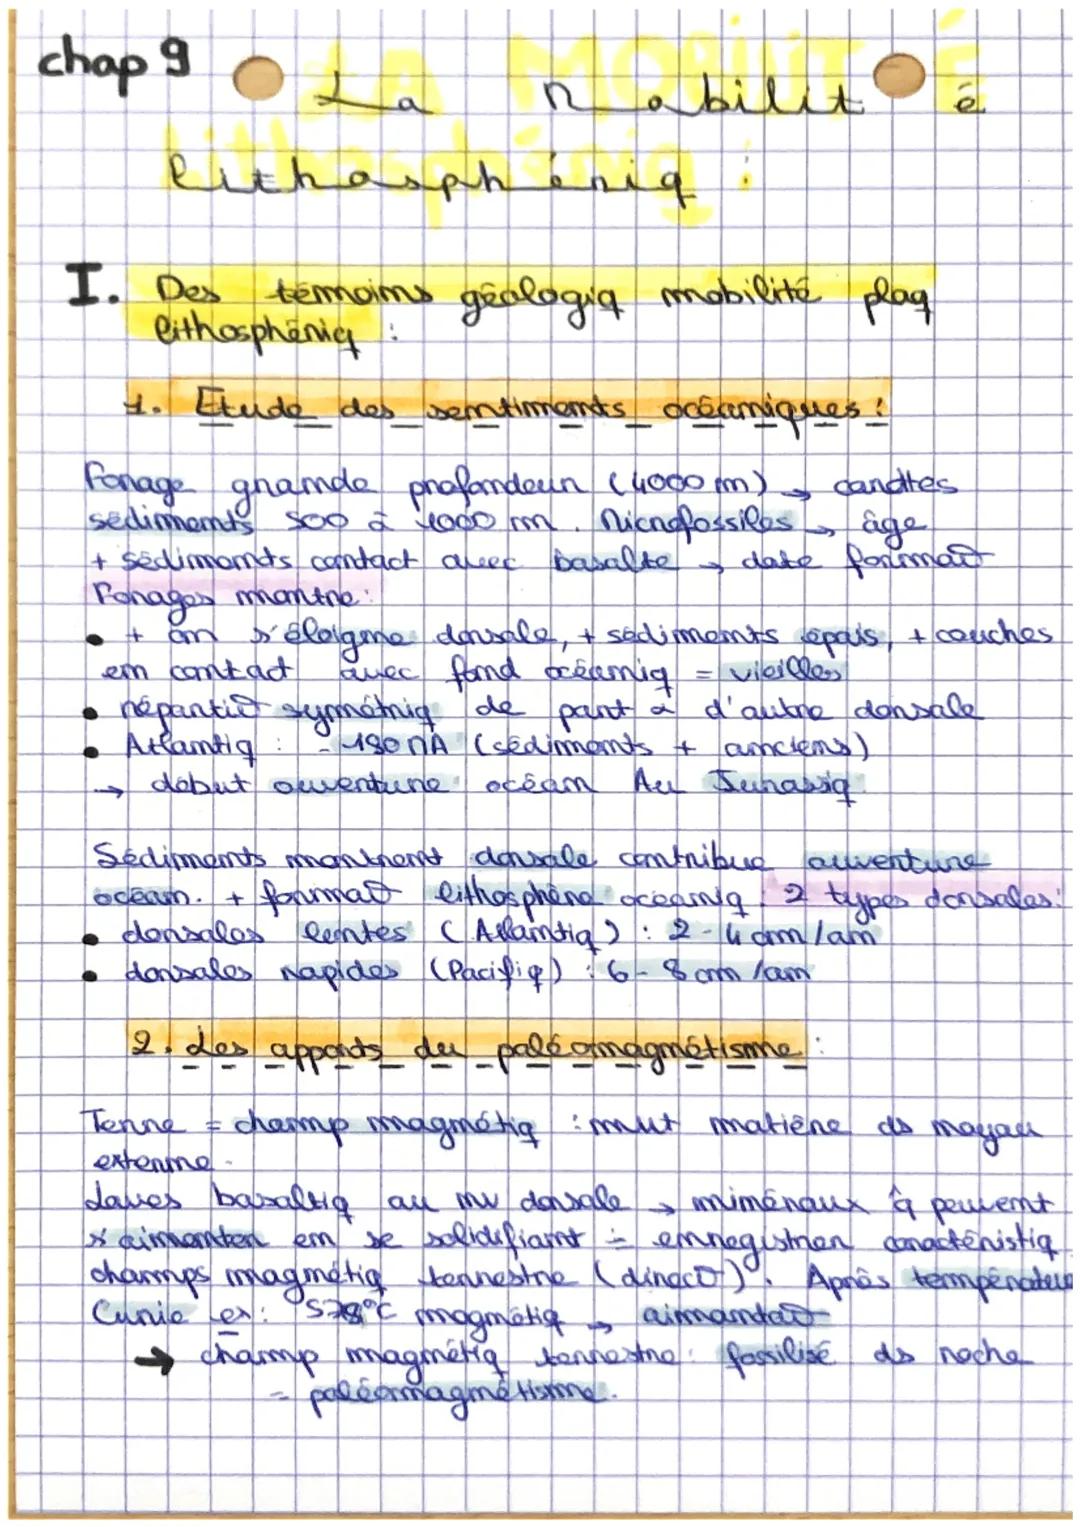 chap 9
LA MOBILITÉ
La Mobilité
lithosphériq :
I. Des témoins géologiq mobilité plaq
lithosphériq :
1. Etude des sentiments océaniques :
Forage grande profondeur (4000 m) → carottes
sédiments 500 à 1000 m. Microfossiles → âge
+ sédiments contact avec basalte → date format°
Forages montre :
• + on s'éloigne dorsale, + sédiments épais, + couches
en contact avec fond océaniq = vieilles
• répartit° symétriq de part & d'autre dorsale
• Atlantiq : - 180 MA (sédiments + anciens)
→ début ouverture océan Au Jurassiq
Sédiments montrent dorsale contribue ouverture
océan. + format° lithosphère océaniq. 2 types dorsales :
• dorsales lentes (Atlantiq) : 2-4 cm/an
• dorsales rapides (Pacifiq) : 6-8 cm/an
2. Les apports du paléomagnétisme :
Terre = champ magnétiq : mvt matière ds noyau
externe.
Laves basaltiq au nv dorsale → minéraux q̂ peuvent
s'aimanter en se solidifiant = enregistrer caractéristiq
champs magnétiq terrestre (direct°). Après température
Curie ex : 578°C magnétiq → aimantat°
→ champ magnétiq terrestre fossilisé ds roche
= paléomagnétisme.